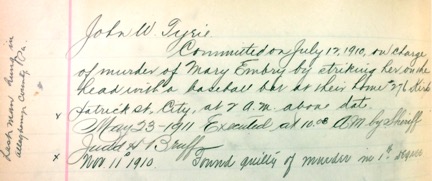 John W. Tyrie
Committed on July 17, 1910, on charge
of murder of Mary Embry by striking her on the
head with a baseball bat at their home 276 Kirk
patrick st, City, at 2 A.M. above date.
x May 23 - 1911 Executed at 10.03 A.M. by Sheriff
Judd H Bruff
x Nov. 11th 1910 Found guilty of murder in 1st degree
Last man hung in
Allegheny County Pa.